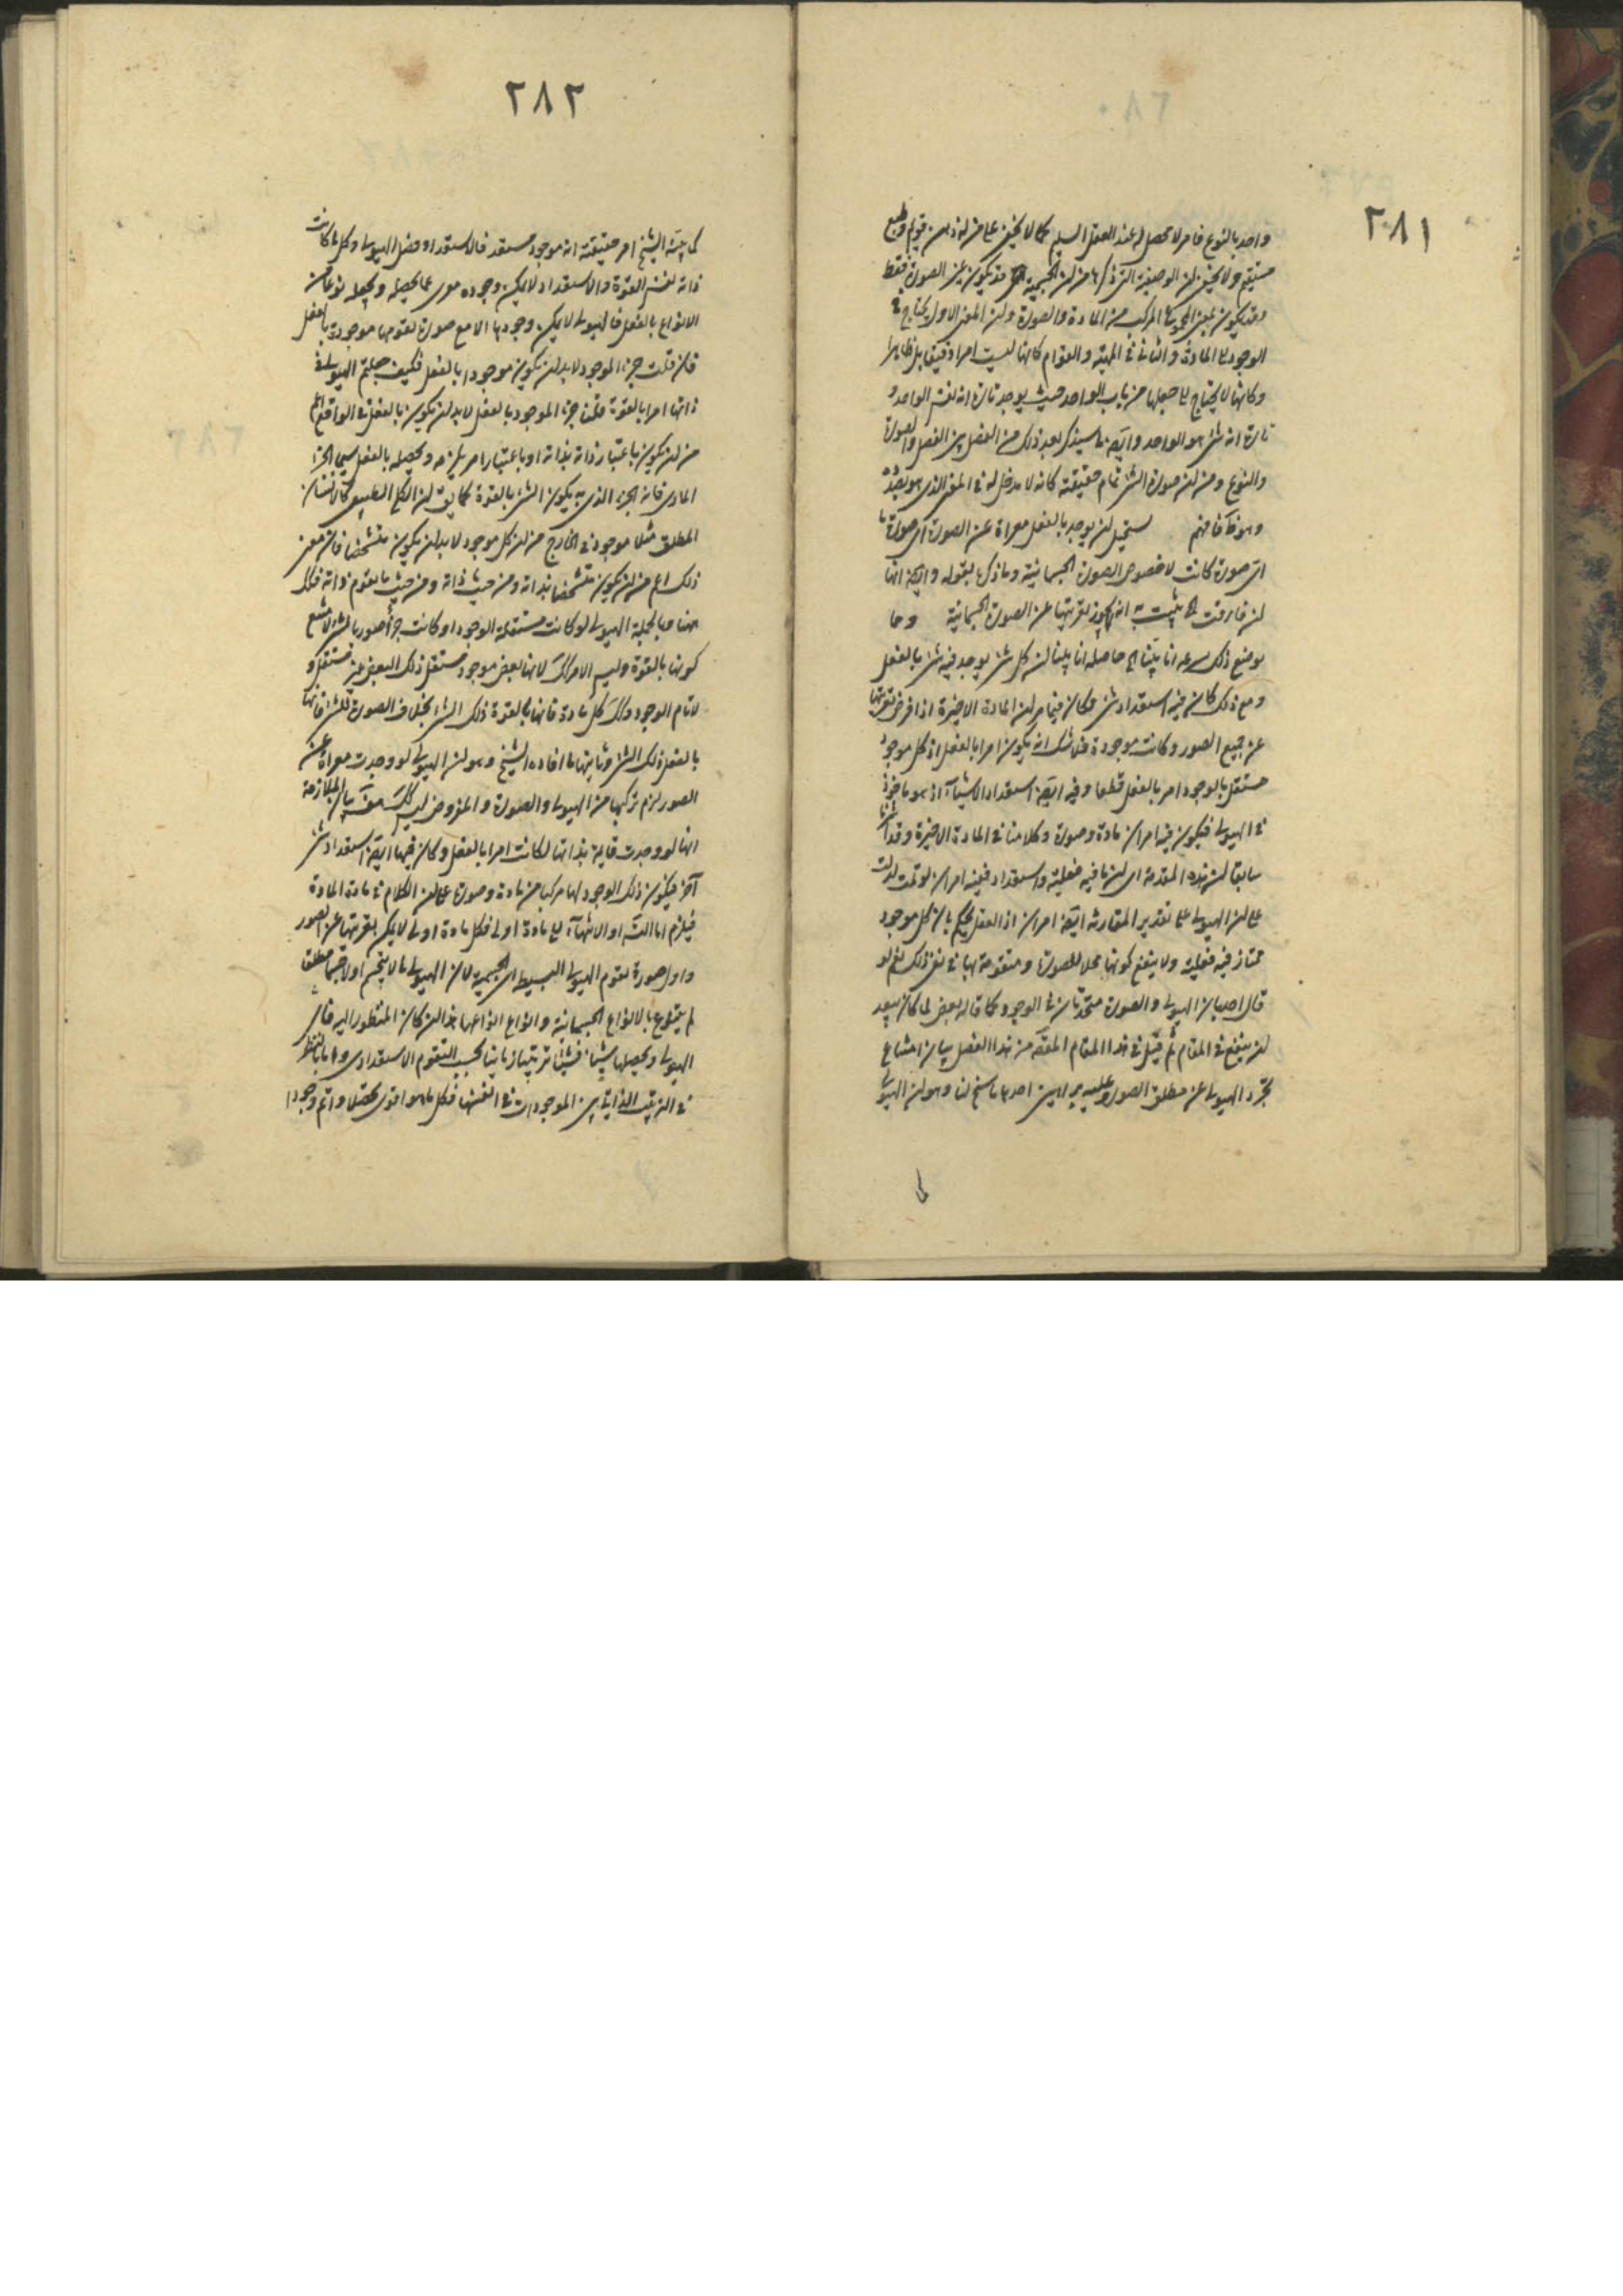 ٢٨١
واحد بالنوع فامر لا محصل له عند العقل السليم كما لا يخفى على من له ذهن قويم وطبع
مستقيم ولا يخفى ان الوصفية التي ذكرها من ان الجسمية قد يكون عين الصورة فقط
وقد يكون بمعنى المجموع المركب من المادة والصورة وان المعنى الاول يحتاج في
الوجود الى المادة والثاني في المهية والقوام كانها ليست امرا دقيقا بل ظاهرا
وكانها لا يحتاج الى جعلها من باب الواحد حيث يوجد تارة انه نفس الواحد و
تارة انه شئ هو الواحد وايضا ما سيذكر بعد ذلك من الفصل بين الفصل والصورة
والنوع ومن ان صورة الشئ تمام حقيقته كانه لا مدخل له في المعنى الذي هو بصدده
وهو فافهم يستحيل ان يوجد بالفعل معراة عن الصورة اى صورة ما
اى صورة كانت لا خصوص الصورة الجسمانية وما ذكره بقوله وايضا انها
ان فارقت الخ يثبت به انه لا يجوز تعريتها عن الصورة الجسمانية وما
يوضح ذلك بسرعة انا بينا الخ حاصله انا بينا ان كل شئ يوجد فيه شئ بالفعل
ومع ذلك كان فيه استعداد شئ وكان فيما مر ان المادة الاخيرة اذا فرض تعريتها
عن جميع الصور وكانت موجودة فلا شك انه يكون امرا بالفعل اذ كل موجود
مستقل بالوجود امر بالفعل قطعا وفيه ايضا استعداد الاشياء اذ هو ماخوذ
في الهيولى فيكون فيه امران مادة وصورة وكلامنا في المادة الاخيرة وقد اشرنا
سابقا ان هذه المقدمة اى ان ما فيه فعلية واستعداد ففيه امران لو تمت لدلت
على ان الهيولى على تقدير المقارنة ايضا امران اذ العقل يحكم بان كل موجود
ممتاز فيه فعلية ولا ينفع كونها محلا للصورة ومتقومة بها في نفى ذلك نعم لو
قال احد بان الهيولى والصورة متحدتان في الوجود كما قاله بعض لما كان يبعد
ان ينفع في المقام ثم قيل في هذا المقام المقصود من هذا الفصل بيان امتناع
تجرد الهيولى عن مطلق الصورة وعليه براهين احدها ما سنح لنا وهو ان الهيولى
٢٨٢
كما بينه الشيخ امر حقيقته انه موجود مستعد فالاستعداد فصل الهيولى وكل ما كانت
ذاته نفس القوة والاستعداد لا يمكن وجوده معرى عما يحصله ويجعله نوعا من
الانواع بالفعل فالهيولى لا يمكن وجودها الا مع صورة تقومها موجودة بالفعل
فان قلت جزء الموجود لا بد ان يكون موجودا بالفعل فكيف جعلتم الهيولى في
ذاتها امرا بالقوة قلنا جزء الموجود بالفعل لا بد ان يكون بالفعل في الواقع اعم
من ان يكون باعتبار ذاته بذاته او باعتبار امر يلزمه ويحصله بالفعل سيما الجزء
المادى فانه الجزء الذي به يكون الشئ بالقوة كما يق ان الكلي الطبيعي كالانسان
المطلق مثلا موجود في الخارج من ان كل موجود لا بد ان يكون متشخصا فان معنى
ذلك اعم من ان يكون متشخصا بذاته ومن حيث ذاته ومن حيث ما يقوم ذاته فكذلك
ههنا وبالجملة الهيولى لو كانت مستقلة الوجود او كانت جزءا صوريا للشئ لامتنع
كونها بالقوة وليس الامر كك لانها بعض موجود مستقل ذلك البعض غير مستقل و
لا تام الوجود وكك كل مادة فانها بالقوة ذلك الشئ بخلاف الصورة للشئ فانها
بالفعل ذلك الشئ وثانيها ما افاده الشيخ وهو ان الهيولى لو وجدت معراة عن
الصور لزم تركبها من الهيولى والصورة والمفروض ليس كك هف بيان الملازمة
انها لو وجدت قايمة بذاتها لكانت امرا بالفعل وكان فيها ايضا استعداد شئ
آخر فيكون ذلك الوجود لها مركبا من مادة وصورة على ان الكلام في مادة المادة
فيلزم اما التسلسل او الانتهاء الى مادة اولى فكل مادة اولى لا يمكن تعريتها عن الصور
واول صورة تقوم الهيولى البسيطة هي الجسمية لان الهيولى ما لا يتجسم اولا جسما مطلقا
لم يتنوع بالانواع الجسمانية وانواع انواعها هذا ان كان المنظور اليه حال
الهيولى وتحصيلها شيئا فشيئا ترتيبا زمانيا بحسب التقوم الاستعدادى واما بالنظر
في الترتيب الذاتي بين الموجودات في انفسها فكل ما هو اقوى تحصلا واتم وجودا